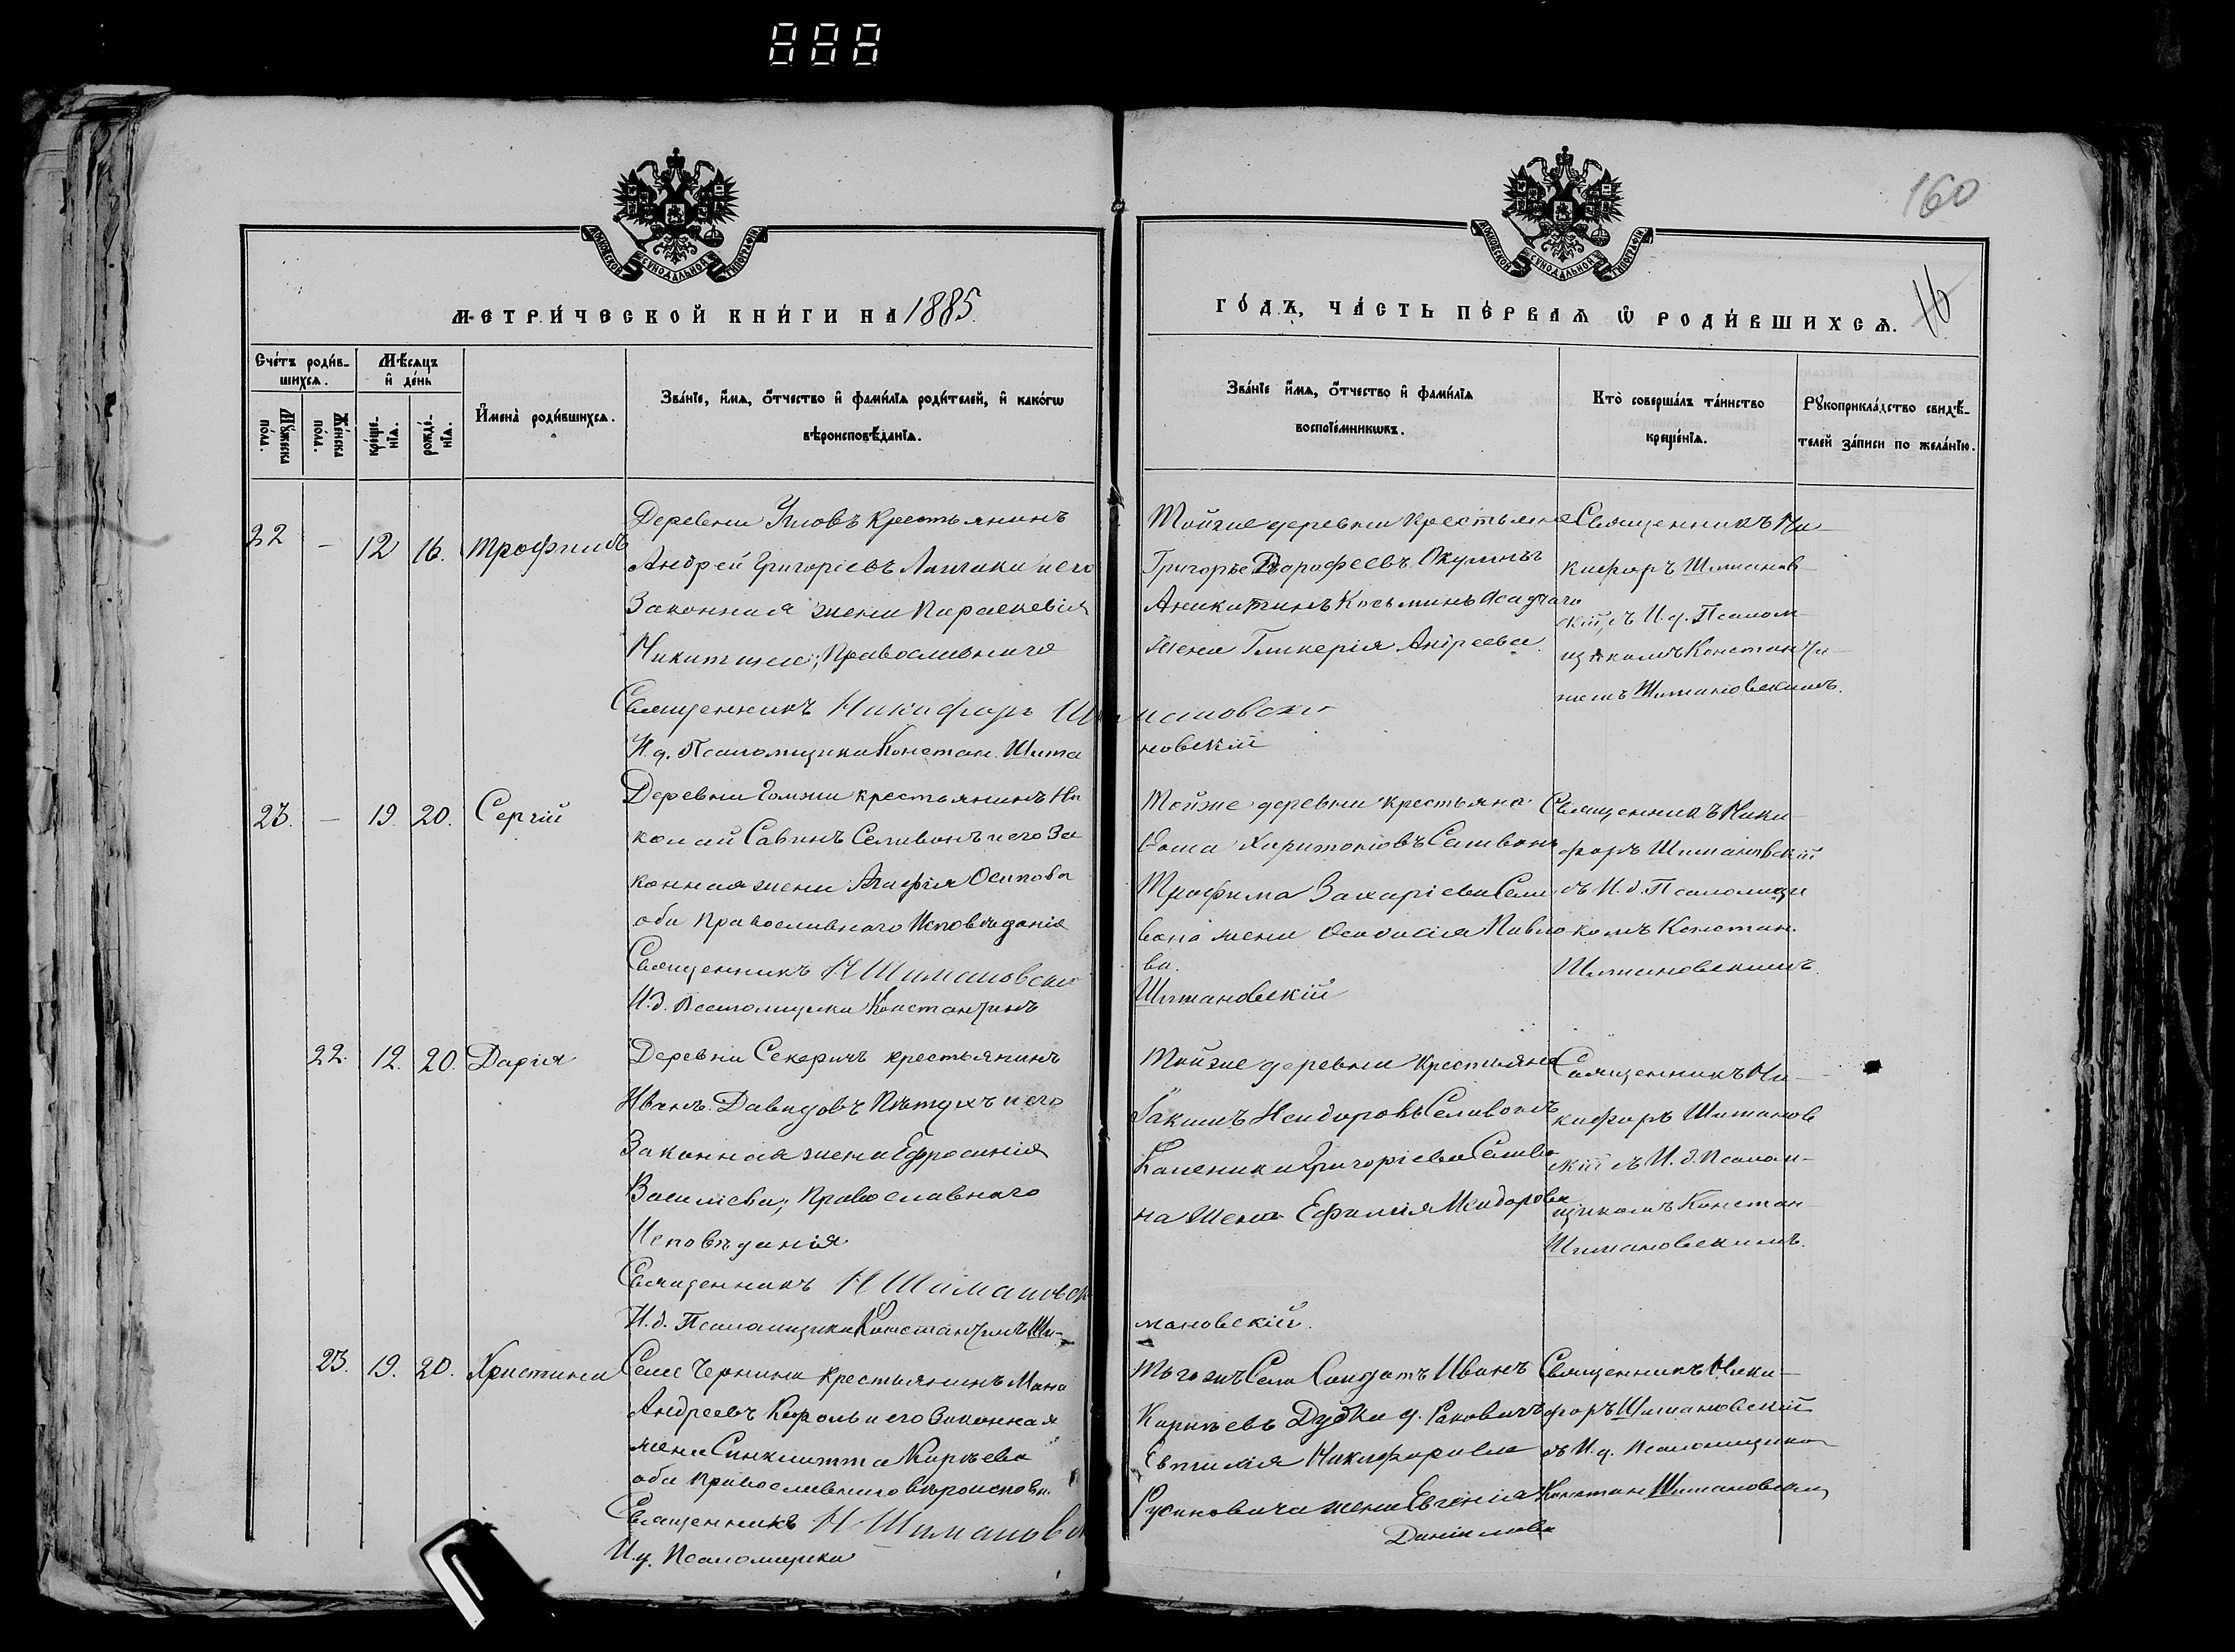 888
160
16
МОСКОВСКОЙ СѴНОДАЛЬНОЙ ТИПОГРАФІИ
МОСКОВСКОЙ СѴНОДАЛЬНОЙ ТИПОГРАФІИ
МЕТРИ́ЧЕСКОЙ КНИ́ГИ НА 1885.
ГО́ДЪ, ЧА́СТЬ ПЕ́РВАѦ Ѿ РОДИ́ВШИХСѦ.
Счéтъ роди́в-
шихсѧ.
Мꙋ́жеска пóла.
Же́нска пóла.
Мѣ́сѧцъ
и҆ де́нь
креще́-
нїѧ.
рожде́-
нїѧ.
И҆мена̀ роди́вшихсѧ.
Зва́нїе, и҆́мѧ, ѻ҆́тчество и҆ фами́лїѧ роди́телей, и҆ како́гѡ
вѣроисповѣ́данїѧ.
Зва́нїе и҆́мѧ, ѻ҆́тчество и҆ фами́лїѧ
воспрїе́мникѡвъ.
Кто̀ соверша́лъ та́инство
креще́нїѧ.
Рꙋкоприкла́дство свидѣ́-
телей за́писи по жела́нїю.
22 — 12 16. Трофимъ
Деревни крестьянинъ
Андрей Григоріевъ и его
Законная жена Параскевія
Никитина; Православнаго
Священникъ Никифоръ Ши
И. д. Псаломщика Констан. Шима
Тойже деревни крестьяне
Григорье Дорофеевъ
Косьминъ
жена Гликерія Андреева
мановскі
новскій
Священникъ Ни-
кифоръ Шиманов-
скій, съ И. д. Псалом-
щикомъ Константи-
номъ Шимановскимъ.
23. — 19. 20. Сергій
Деревни крестьянинъ Ни
колай Савинъ Селивонъ и его За
конная жена Агафія Осипова
оба Православнаго Исповѣданія
Священникъ Н Шимановскі
И. д. Псаломщика Константинъ
Тойже деревни крестьяне
Ѳома Харитоновъ Селивонъ
Трофима Захаріева Сели
вона жена Ѳеодосія Павло
ва.
Шимановскій
Священникъ Ники-
форъ Шимановскій
съ И. д. Псаломщи
комъ Констан.
Шимановскимъ.
22. 12. 20. Дарія
Деревни Секеричъ крестьянинъ
Иванъ Давидовъ Пѣтухъ и его
Законная жена Ефросинія
Василіева; Православнаго
Исповѣданія
Священникъ Н Шимановск
И. д. Псаломщика Константинъ Ши-
Тойже деревни крестьяне
Іакимъ Исидоровъ Селивонъ
Каленика Григоріева Селиво
на жена Ефимія Исидорова
мановскій.
Священникъ Ни-
кифоръ Шиманов
скій съ И. д. Псалом-
щикомъ Констан-
Шимановскимъ.
23. 19. 20. Христина
Села Чернина крестьянинъ
Андреевъ Король и его Законная
жена Синклитта Карпѣева
оба Православнаго вѣроисповѣ.
Священникъ Н Шимановск
И. д. Псаломщика
Тогожъ Села Солдатъ Иванъ
Карпѣевъ Дудка д. Раковичъ
Никифорова
жена Евгенія
Даніилова
Священникъ Ники-
форъ Шимановскій
съ И. д. Псаломщика
Констан Шимановским